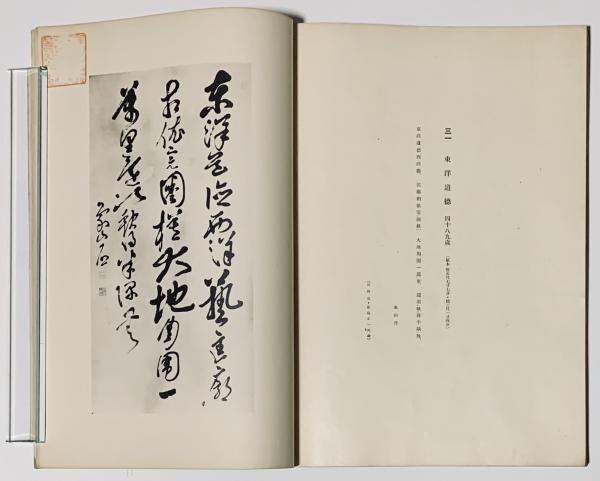 三一 東洋道德 四十八九歲
東洋道德西洋藝、匡廓相依完圈模、大地周圍一萬里、還須缺得半隅無。
東洋道德西洋藝匡廓
相依完圈模大地周圍一
萬里還須缺得半隅無
象山